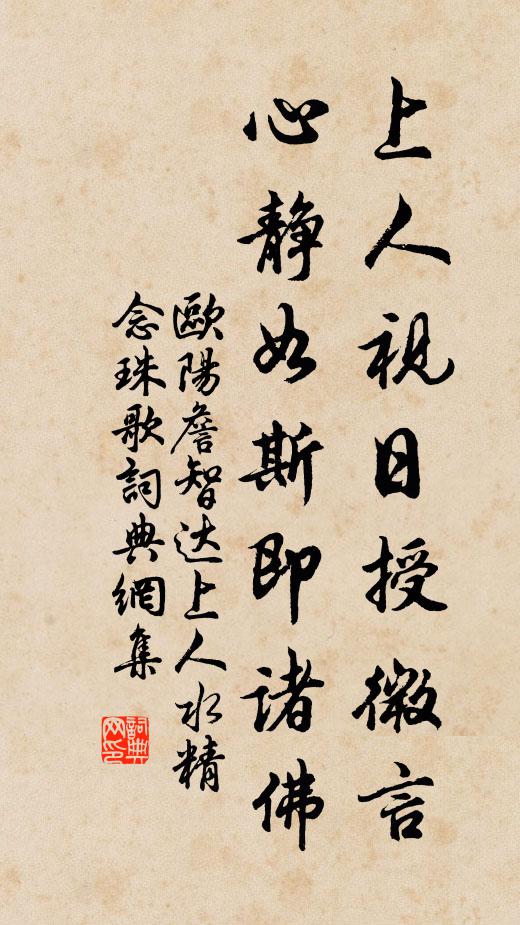 上人視日授微言
心静如斯即諸佛
歐陽詹智达上人水精
念珠歌詞典網集
詞典
网印